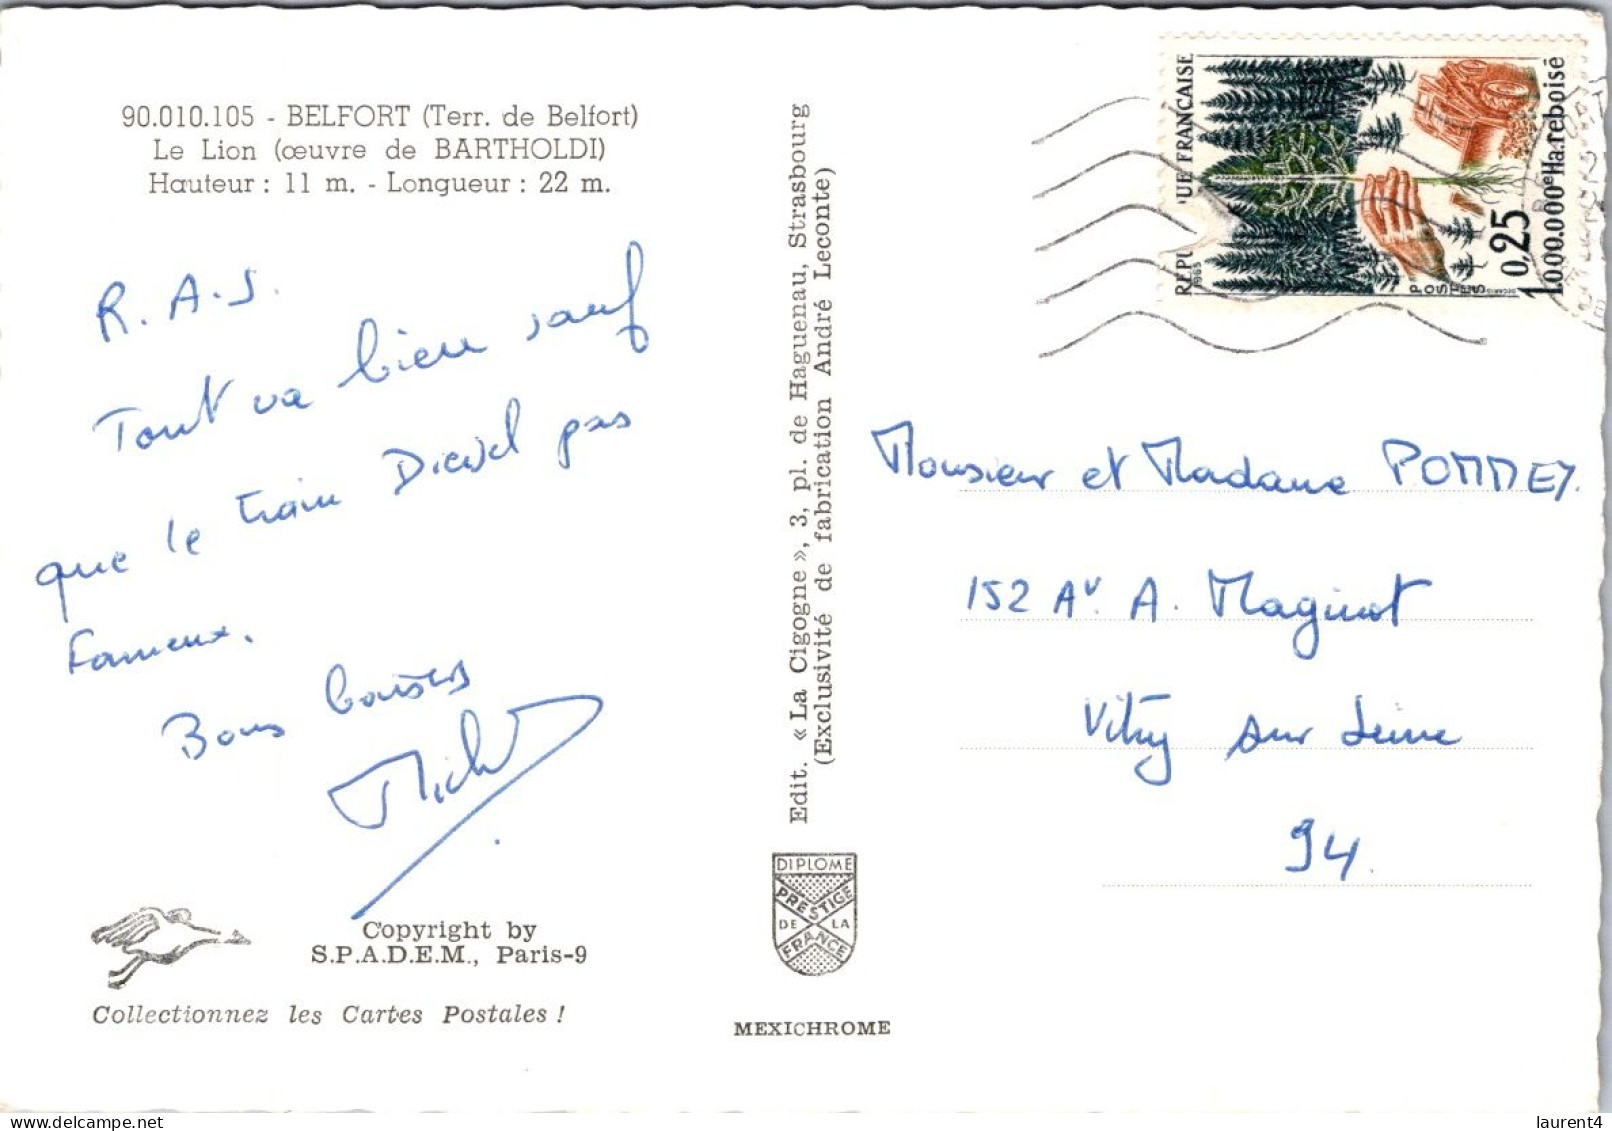 90.010.105 - BELFORT (Terr. de Belfort)
Le Lion (œuvre de BARTHOLDI)
Hauteur : 11 m. - Longueur : 22 m.
R.A.S.
Tout va bien sauf
que le train Diesel pas
Fameux.
Bons baisers
Michel
Copyright by
S.P.A.D.E.M., Paris-9
Collectionnez les Cartes Postales !
Edit. « La Cigogne », 3, pl. de Haguenau, Strasbourg
(Exclusivité de fabrication André Leconte)
DIPLOME
PRESTIGE
DE LA
FRANCE
MEXICHROME
REPUBLIQUE FRANCAISE
1965
POSTES
0,25
1.000.000e Ha.reboisé
Monsieur et Madame POMMEY.
152 Av. A. Maginot
Vitry sur Seine
94.
laurent4